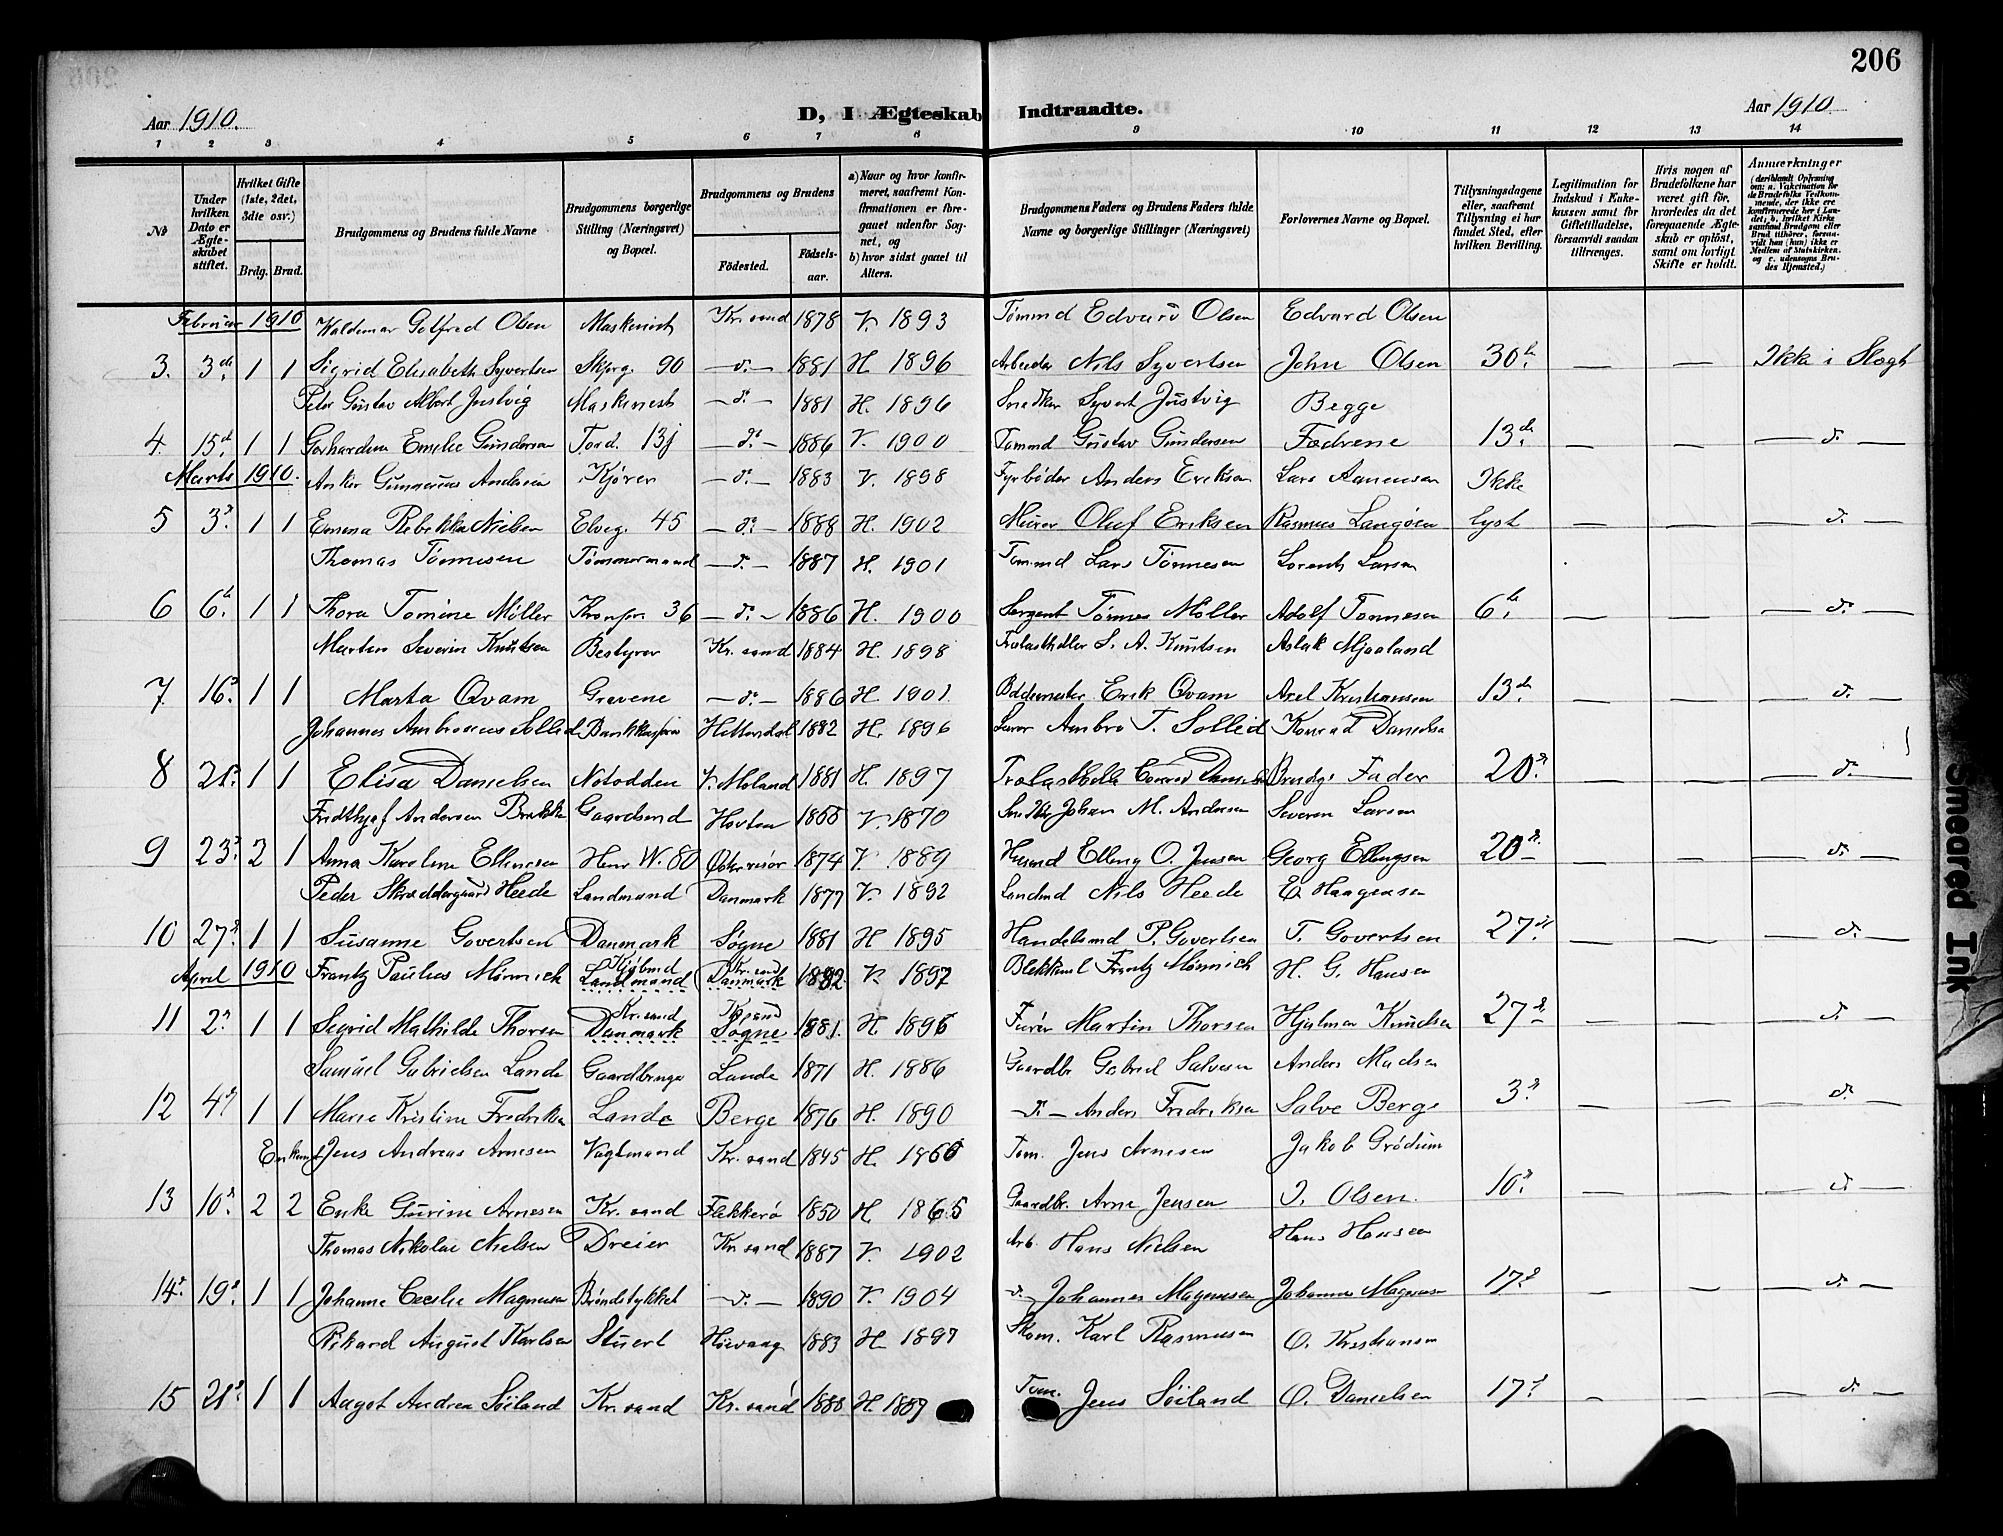 206
Aar 1910. D, I Ægteskab Indtraadte. Aar 1910.
1 2 3 4 5 6 7 8 9 10 11 12 13 14
No
Under hvilken Dato er Ægteskabet stiftet.
Hvilket Gifte (1ste, 2det, 3die osv.)
Brdg. Brud.
Brudgommens og Brudens fulde Navne
Brudgommens borgerlige Stilling (Næringsvei) og Bopæl.
Brudgommens og Brudens
Födested. Födselsaar.
a) Naar og hvor konfirmeret, saafremt Konfirmationen er foregaaet udenfor Sognet, og
b) hvor sidst gaaet til Alters.
Brudgommens Faders og Brudens Faders fulde Navne og borgerlige Stillinger (Næringsvei)
Forlovernes Navne og Bopæl.
Tillysningsdagene eller, saafremt Tillysning ei har fundet Sted, efter hvilken Bevilling.
Legitimation for Indskud i Enkekassen samt for Giftetilladelse, forsaavidt saadan tiltrænges.
Hvis nogen af Brudefolkene har været gift før, hvorledes da det foregaaende Ægteskab er opløst, samt om lovligt Skifte er holdt.
Anmærkninger
Februar 1910 Valdemar Gotfred Olsen Maskinist Kr.sand 1878 V. 1893 Tømmd Edvard Olsen Edvard Olsen
3. 3die 1 1 Sigrid Elisabeth Syvertsen Skprg. 90 — do — 1881 H 1896 Arbeider Nils Syvertsen John Olsen 30te — — Ikke i Slægt
Peter Gustav Albert Justvig Maskinist — do — 1881 H. 1896 Snedker Syvert Justvig Begge
4. 15de 1 1 Gerhardine Emelie Gundersen Tord. 13j — do — 1886 V. 1900 Tømmd Gustav Gundersen Fædrene 13de — — — do —
Marts 1910. Anker Gunnerius Andersen Kjører — do — 1883 V. 1898 Fyrbøder Anders Eriksen Lars Aanensen Ikke
5 3die 1 1 Emma Rebekka Nielsen Elveg. 45 — do — 1888 H. 1902 Murer Oluf Eriksen Rasmus Langøen lyst — — — do —
Thomas Tønnesen Tømmermand — do — 1887 H. 1901 Tømmd Lars Tønnesen Lorents Larsen
6 6te 1 1 Thora Tomine Møller Kronpr. 36 — do — 1886 H. 1900 Sergent Tønnes Møller Adolf Tønnesen 6te — — — do —
Marten Severin Knutsen Bestyrer Kr.sand 1884 H. 1898 Trælasthdler S. A. Knutsen Aslak Mjaaland
7. 16de 1 1 Marta Qvam Gravene — do — 1886 H. 1901. Erik Qvam Axel Kristiansen 13de — — — do —
Johannes Ambrosius Sollid Bankkasserer Hitterdal 1882 H. 1896 Ambro T. Sollid Konrad Danielsen
8 21de 1 1 Elisa Danielsen Notodden V. Moland 1881 H. 1897 Danielsen Brudgs Fader 20de — — — do —
Fridthjof Andersen Gaardsmd 1855 V. 1870 Snedker Johan M. Andersen Severin Larsen
9 23de 2 1 Anna Karoline Ellingsen Henr W. 80 Østerrisør 1874 V 1889 Husmd Elling O. Jensen Georg Ellingsen 20de — — — do —
Peder Skræddergaard Heede Landmand Danmark 1877 V. 1892 Landmd Nils Heede E. Haagensen
10 27de 1 1 Susanne Govertsen Danmark Søgne 1881 H 1895 Handelsmd P. Govertsen T. Govertsen 27de — — — do —
April 1910 Frantz Paulus Mönnich Kjøbmd Landmand Kr.sand Danmark 1882. V. 1897 Frantz Mönnich H. G. Hansen
11 2den 1 1 Sigrid Mathilde Thorsen Kr.sand Danmark Kr.sand Søgne 1881. H 1896 Furér Martin Thorsen Hjalmar Knudsen 27de — — — do —
Samuel Gabrielsen Lande Gaardbruger Lande 1871 H. 1886 Gaardbr Gabriel Salvesen Anders Madsen
12 4de 1 1 Marie Kristine Fredriksen Lande Berge 1876 H. 1890 — do — Anders Fredriksen Salve Berge 3die — — — do —
Enkemd Jens Andreas Arnesen Vagtmand Kr.sand 1845 H. 1860 Tom. Jens Arnesen Jakob Grødum
13 10de 2 2 Enke Gurine Arnesen Kr.sand Flekkerø 1850 H 1865 Gaardbr. Arne Jensen J. Olsen. 10de — — — do —
Thomas Nikolai Nielsen Dreier Kr.sand 1887 V. 1902 Arb. Hans Nielsen Hans Hansen
14de. 19de 1 1 Johanne Cecelie Magnussen Brøndstykket — do — 1890 V. 1904 do — Johannes Magnussen Johannes Magnussen 17de — — — do —
Rikard August Karlsen Stuert Høivaag 1883 H. 1897 Skom. Karl Rasmussen O. Kristiansen
15 21de 1 1 Aagot Andrea Söiland Kr.sand Kr.sand 1888 H. Tom. Jens Söiland O. Danielsen 17de — — — do —
Smeared Ink